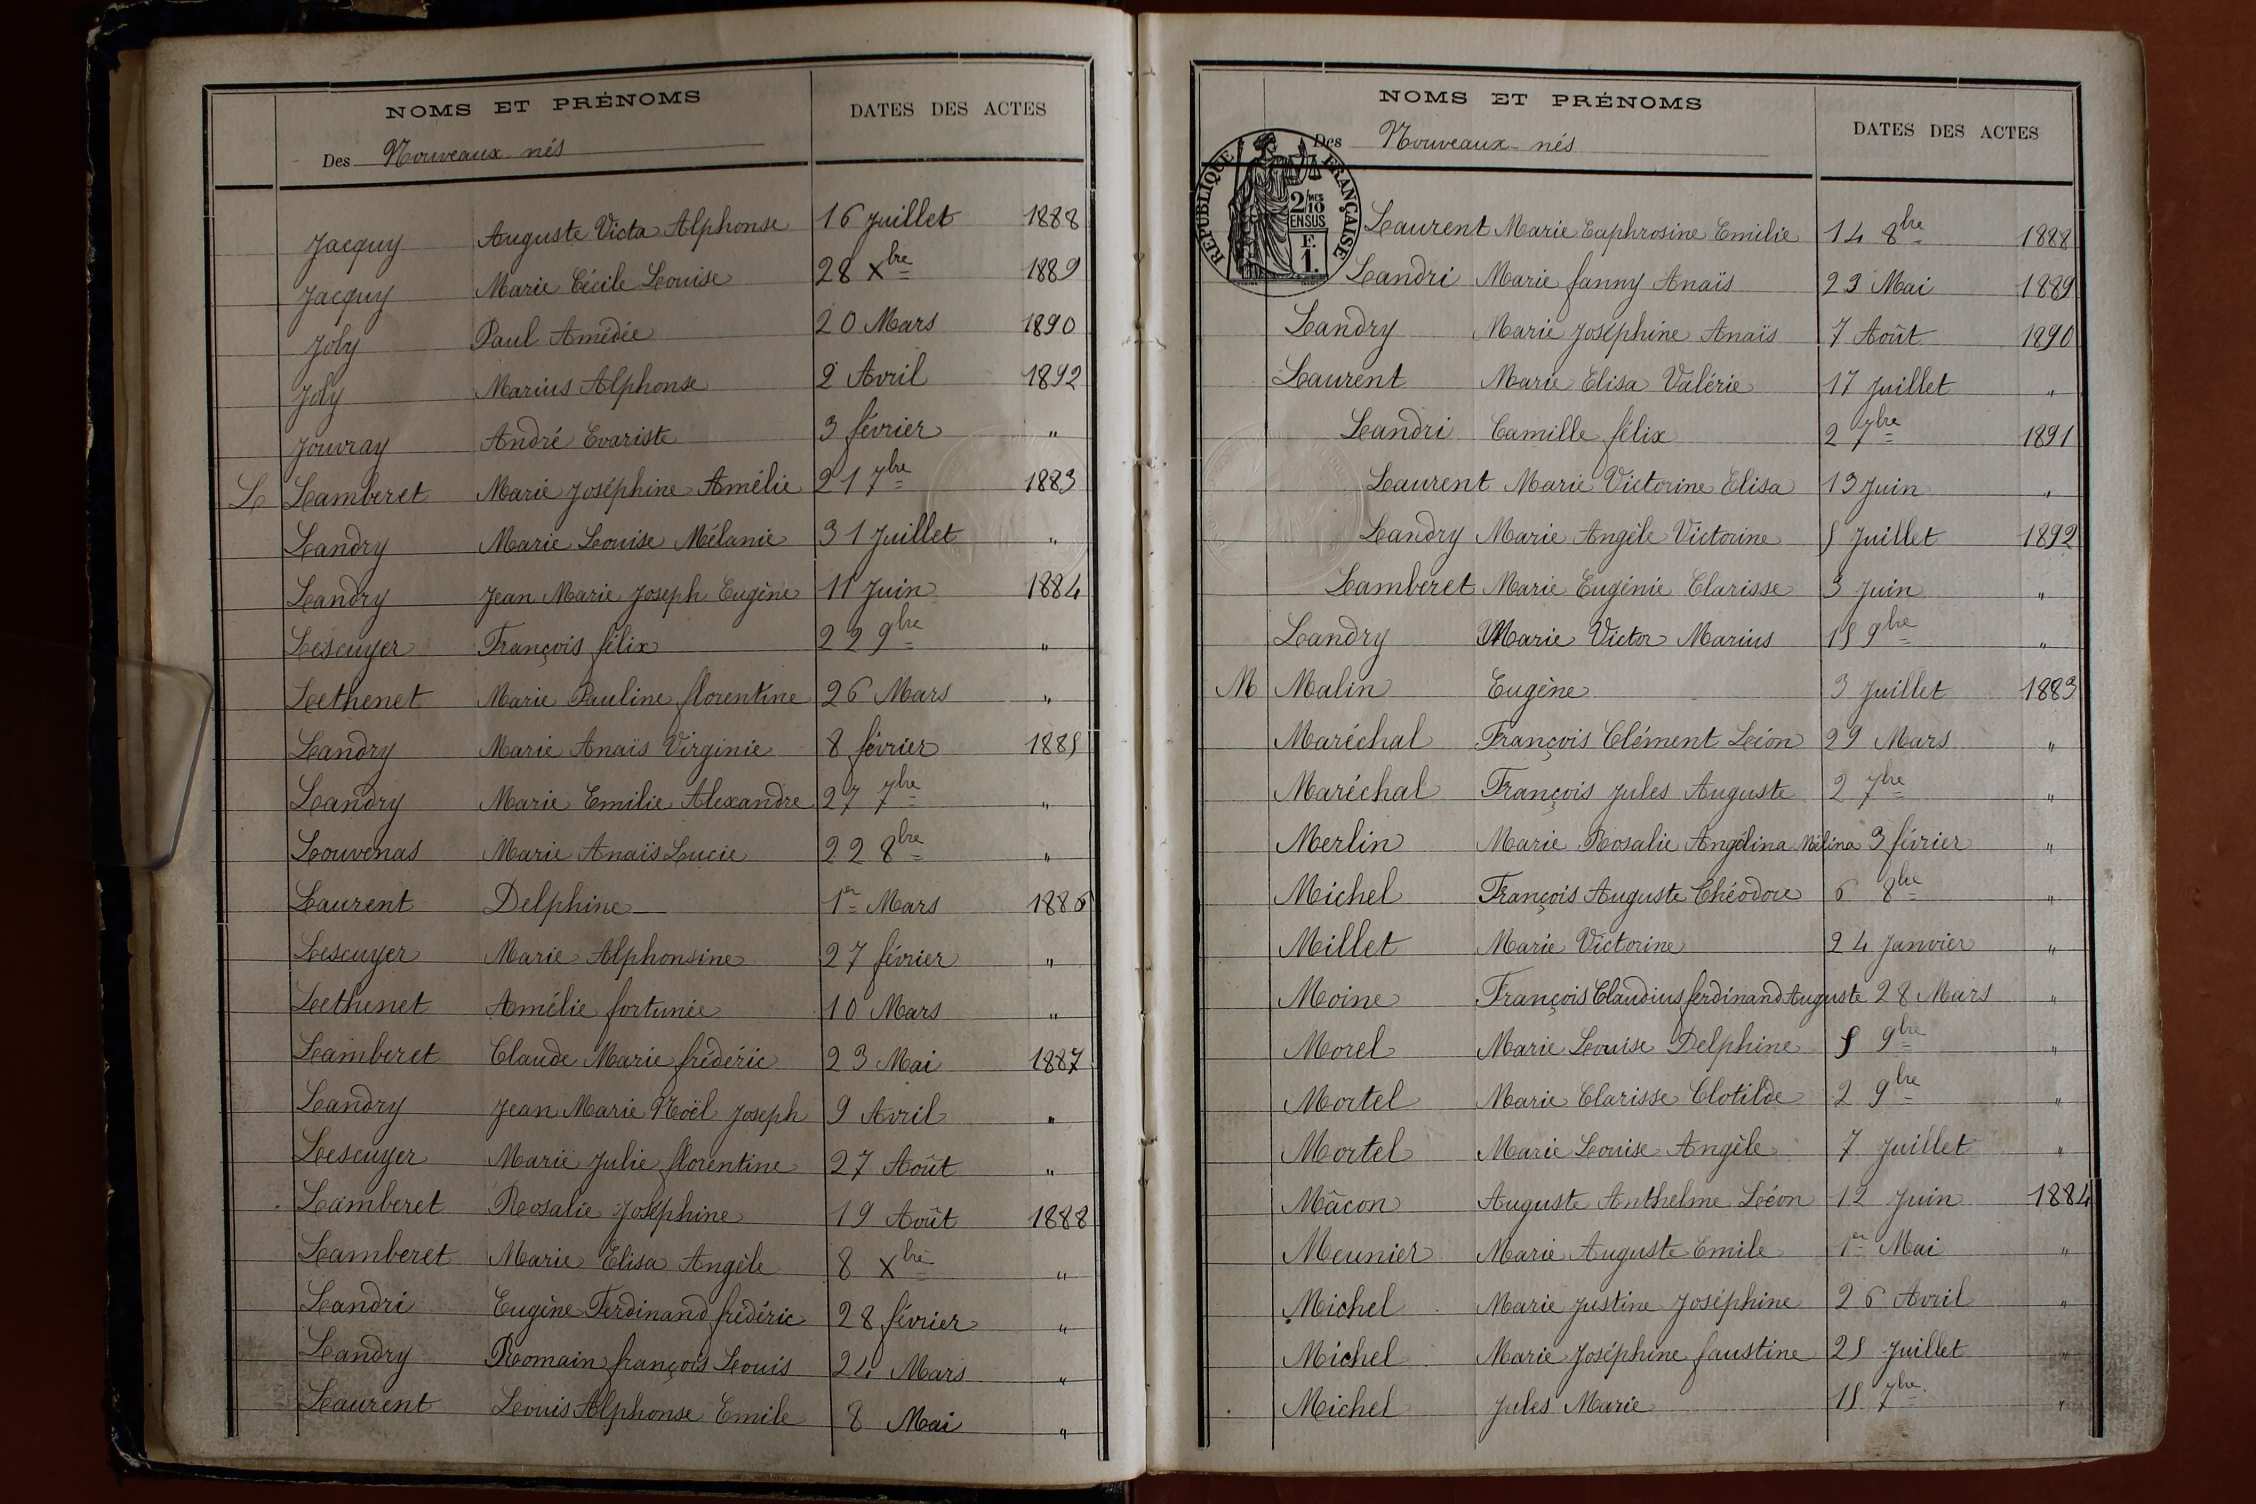 NOMS ET PRÉNOMS DATES DES ACTES
Des Nouveaux nés
Jacquy Auguste Victa Alphonse 16 juillet 1888
Jacquy Marie Cécile Louise 28 Xbre 1889
Joly Paul Amédée 20 Mars 1890
Joly Marius Alphonse 2 Avril 1892
Jouvray André Evariste 3 février "
L Lamberet Marie Joséphine Amélie 21 7bre 1883
Landry Marie Louise Mélanie 31 Juillet "
Landry Jean Marie Joseph Eugène 11 Juin 1884
Lescuyer François félix 22 9bre "
Lethenet Marie Pauline florentine 26 Mars "
Landry Marie Anaïs Virginie 8 février 1885
Landry Marie Emilie Alexandre 27 7bre "
Louvenas Marie Anaïs Lucie 22 8bre "
Laurent Delphine 1er Mars 1886
Lescuyer Marie Alphonsine 27 février "
Lethenet Amélie fortunée 10 Mars "
Lamberet Claude Marie frédéric 23 Mai 1887
Landry Jean Marie Noël Joseph 9 Avril "
Lescuyer Marie Julie florentine 27 Août "
Lamberet Rosalie Joséphine 19 Août 1888
Lamberet Marie Elisa Angèle 8 Xbre "
Landri Eugène Ferdinand frédéric 28 février "
Landry Romain françois Louis 24 Mars "
Laurent Louis Alphonse Emile 8 Mai "
NOMS ET PRÉNOMS DATES DES ACTES
Des Nouveaux-nés
RÉPUBLIQUE FRANÇAISE
2/MES 10
EN SUS
F.
1.
Laurent Marie Euphrosine Emilie 14 8bre 1888
Landri Marie fanny Anaïs 23 Mai 1889
Landry Marie Joséphine Anaïs 7 Août 1890
Laurent Marie Elisa Valérie 17 Juillet "
Landri Camille félix 2 7bre 1891
Laurent Marie Victorine Elisa 13 Juin "
Landry Marie Angèle Victorine 5 Juillet 1892
Lamberet Marie Eugénie Clarisse 3 Juin "
Landry Marie Victor Marius 15 9bre "
M Malin Eugène 3 Juillet 1883
Maréchal François Clément Léon 29 Mars "
Maréchal François Jules Auguste 2 7bre "
Merlin Marie Rosalie Angélina Mélina 3 février "
Michel François Auguste Théodore 6 8bre "
Millet Marie Victorine 24 Janvier "
Moine François Claudius ferdinand Auguste 28 Mars "
Morel Marie Louise Delphine 5 9bre "
Mortel Marie Clarisse Clotilde 2 9bre "
Mortel Marie Louise Angèle 7 Juillet "
Mâcon Auguste Anthelme Léon 12 Juin 1884
Meunier Marie Auguste Emile 1er Mai "
Michel Marie Justine Joséphine 26 Avril "
Michel Marie Joséphine faustine 25 Juillet "
Michel Jules Marie 15 7bre "